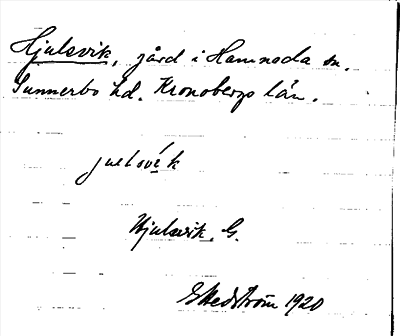 Hjulsvik, gård i Hamneda sn.
Sunnerbo hd. Kronobergs län.
juelsvik
Hjulsvik. G.
E Hedström 1920